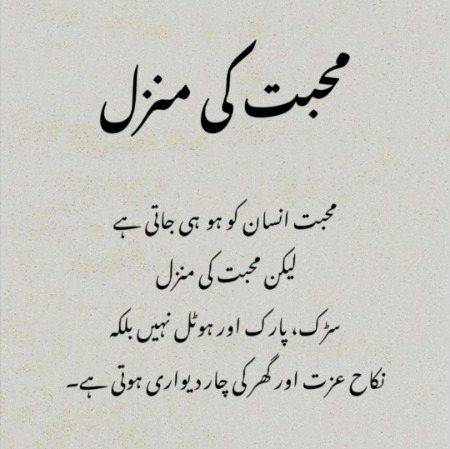 محبت کی منزل
محبت انسان کو ہو ہی جاتی ہے
لیکن محبت کی منزل
سڑک، پارک اور ہوٹل نہیں بلکہ
نکاح عزت اور گھر کی چار دیواری ہوتی ہے۔